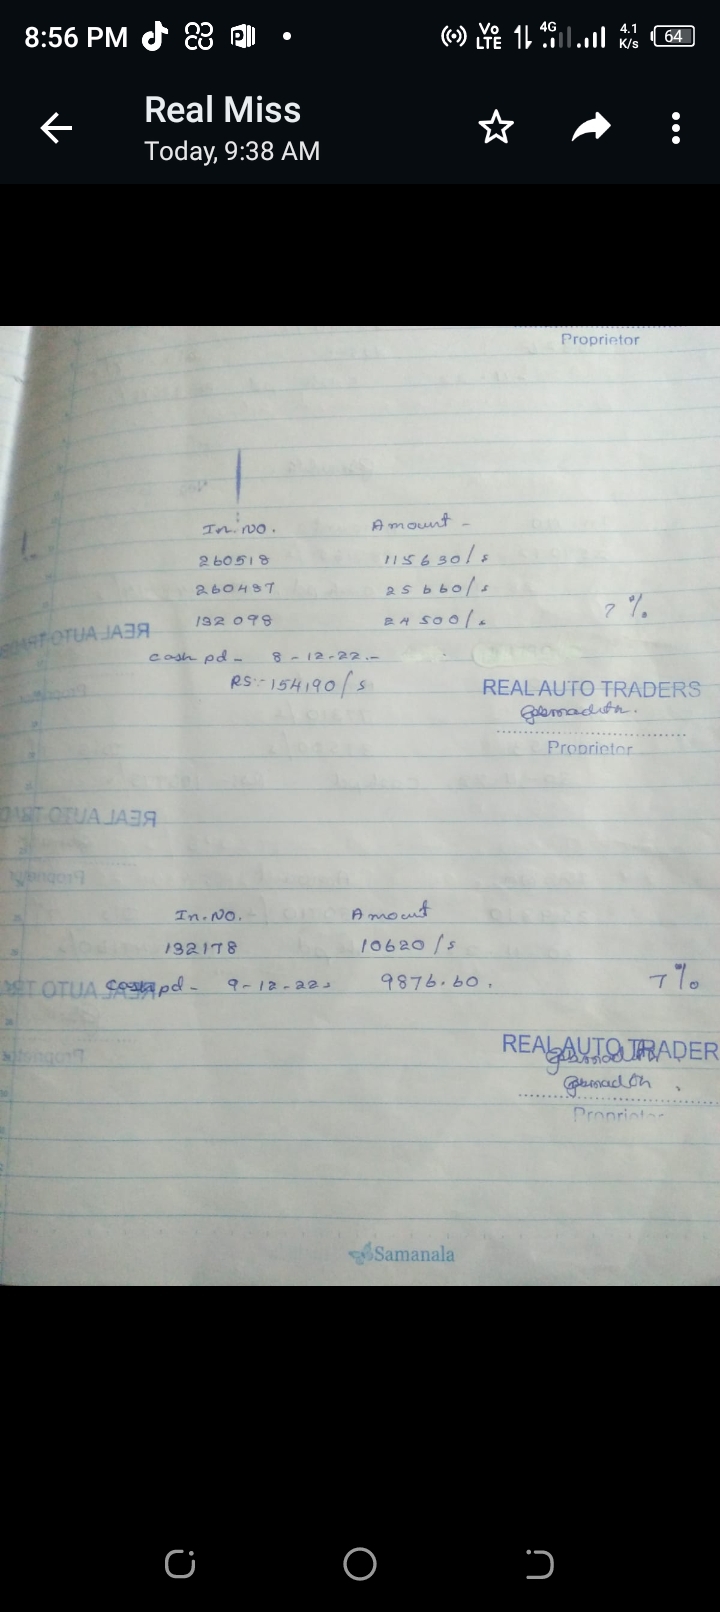 8:56 PM
Vo LTE 4G 4.1 K/s 64
Real Miss
Today, 9:38 AM
Proprietor
In. NO. Amount -
260518 115630/s
260497 25660/s
132098 24500/s 7%
cash pd - 8-12-22.-
RS:- 154190/s
REAL AUTO TRADERS
Proprietor
In. NO. Amount
132178 10620/s
cash pd - 9-12-22. 9876.60. 7%
REAL AUTO TRADER
Proprietor
Samanala